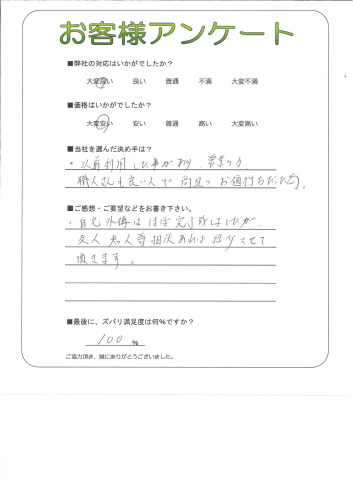 お客様アンケート
■弊社の対応はいかがでしたか?
大変良い 良い 普通 不満 大変不満
■価格はいかがでしたか?
大変安い 安い 普通 高い 大変高い
■当社を選んだ決め手は?
・以前利用した事があり、営業の方
職人さんも良い人で 尚且つ お値打ちだった為。
■ご感想・ご要望などをお書き下さい。
・自宅外構はほぼ完了致しましたが、
友人、知人等相談あれば紹介させて
頂きます。
■最後に、ズバリ満足度は何%ですか?
100 %
ご協力頂き、誠にありがとうございました。